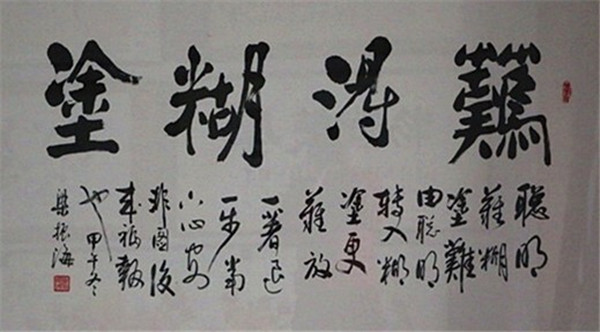 難得糊塗
聰明
難糊
塗難
由聰明
轉入糊
塗更
難放
一著退
一步當
下心安
非圖後
来福報
也甲午冬
梁振海